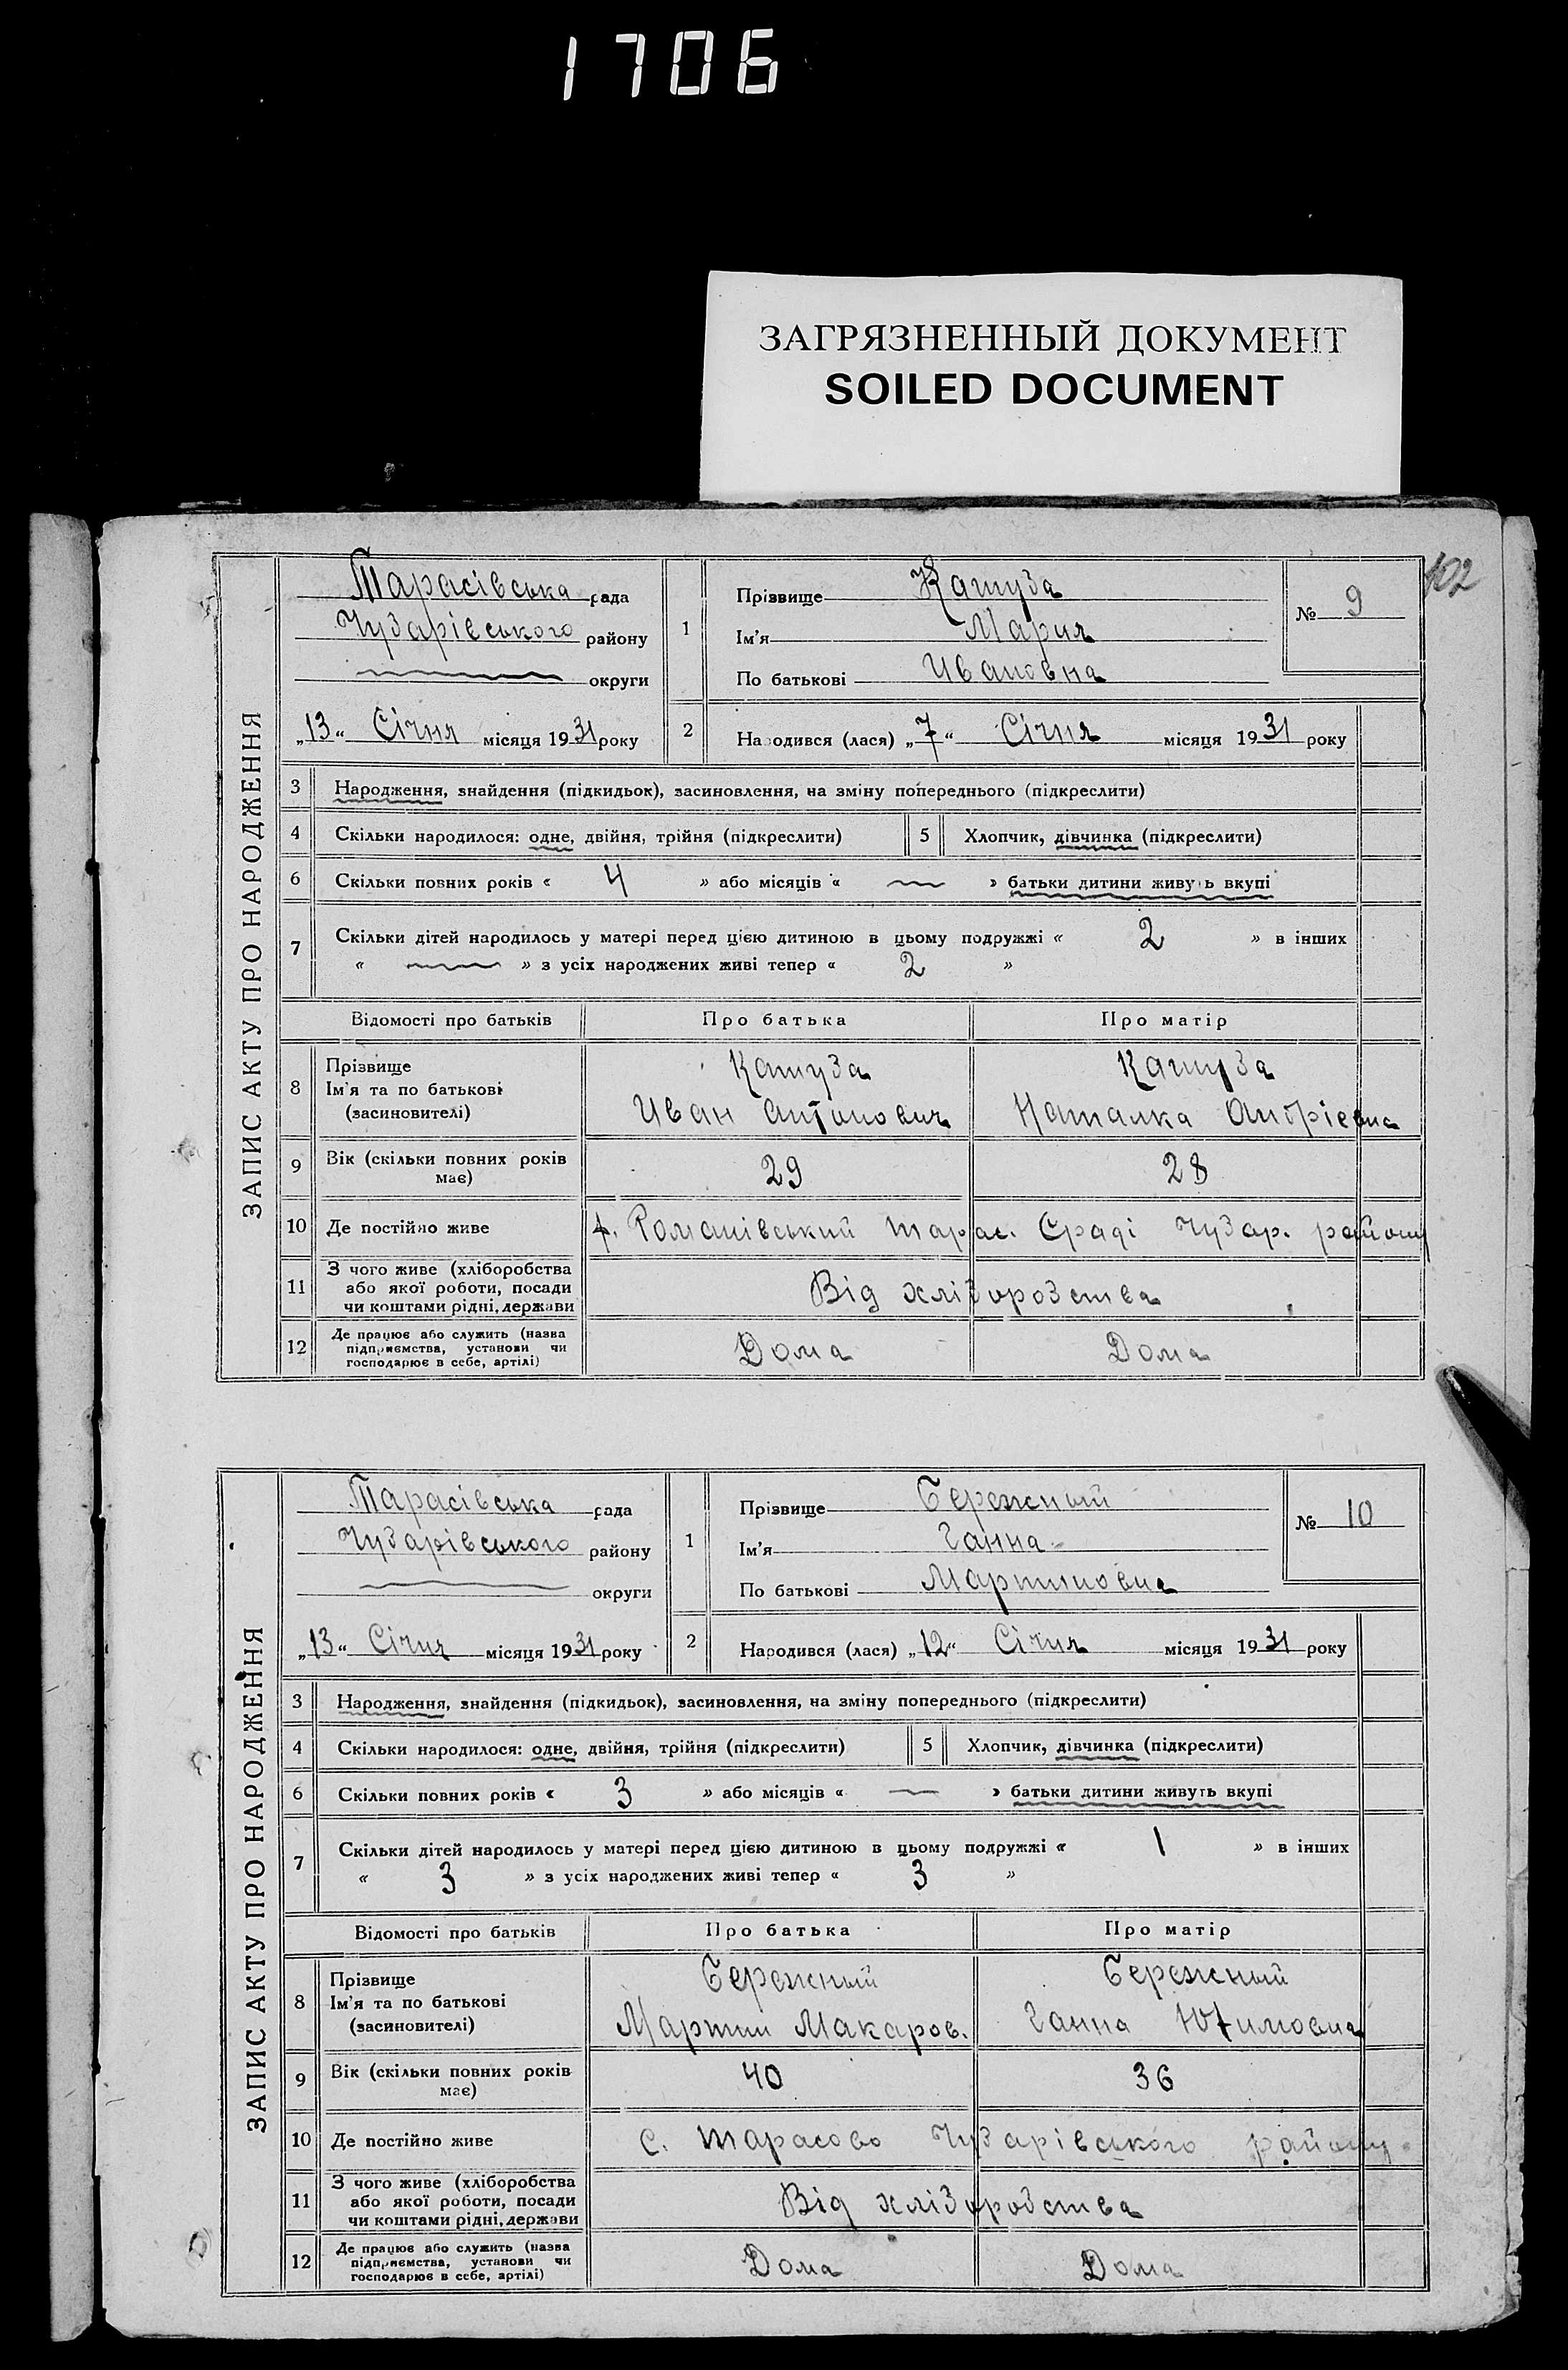 1706
ЗАГРЯЗНЕННЫЙ ДОКУМЕНТ
SOILED DOCUMENT
102
ЗАПИС АКТУ ПРО НАРОДЖЕННЯ
Тарасівська рада
Чубарівського району
округи
„13“ Січня місяця 1931 року
1
Прізвище Катуза
Ім'я Мария
По батькові Ивановна
№ 9
2 Народився (лася) „7“ Січня місяця 1931 року
3 Народження, знайдення (підкидьок), засиновлення, на зміну попереднього (підкреслити)
4 Скільки народилося: одне, двійня, трійня (підкреслити) 5 Хлопчик, дівчинка (підкреслити)
6 Скільки повних років « 4 » або місяців « — » батьки дитини живуть вкупі
7 Скільки дітей народилось у матері перед цією дитиною в цьому подружжі « 2 » в інших
« — » з усіх народжених живі тепер « 2 »
Відомості про батьків Про батька Про матір
8 Прізвище Ім'я та по батькові (засиновителі)
Катуза Катуза
Иван Антонович Наталка Андрієвна
9 Вік (скільки повних років має) 29 28
10 Де постійно живе Романівський Тарас. Сраді Чубар. району
11 З чого живе (хліборобства або якої роботи, посади чи коштами рідні, держави Від хліборобства
12 Де працює або служить (назва підприємства, установи чи господарює в себе, артілі) Дома Дома
ЗАПИС АКТУ ПРО НАРОДЖЕННЯ
Тарасівська рада
Чубарівського району
округи
„13“ Січня місяця 1931 року
1
Прізвище Бережный
Ім'я Ганна
По батькові Мартиновна
№ 10
2 Народився (лася) „12“ Січня місяця 1931 року
3 Народження, знайдення (підкидьок), засиновлення, на зміну попереднього (підкреслити)
4 Скільки народилося: одне, двійня, трійня (підкреслити) 5 Хлопчик, дівчинка (підкреслити)
6 Скільки повних років « 3 » або місяців « — » батьки дитини живуть вкупі
7 Скільки дітей народилось у матері перед цією дитиною в цьому подружжі « 1 » в інших
« 3 » з усіх народжених живі тепер « 3 »
Відомості про батьків Про батька Про матір
8 Прізвище Ім'я та по батькові (засиновителі)
Бережный Бережный
Мартин Макаров. Ганна Юхимовна
9 Вік (скільки повних років має) 40 36
10 Де постійно живе С. Тарасово Чубарівського району
11 З чого живе (хліборобства або якої роботи, посади чи коштами рідні, держави Від хліборобства
12 Де працює або служить (назва підприємства, установи чи господарює в себе, артілі) Дома Дома